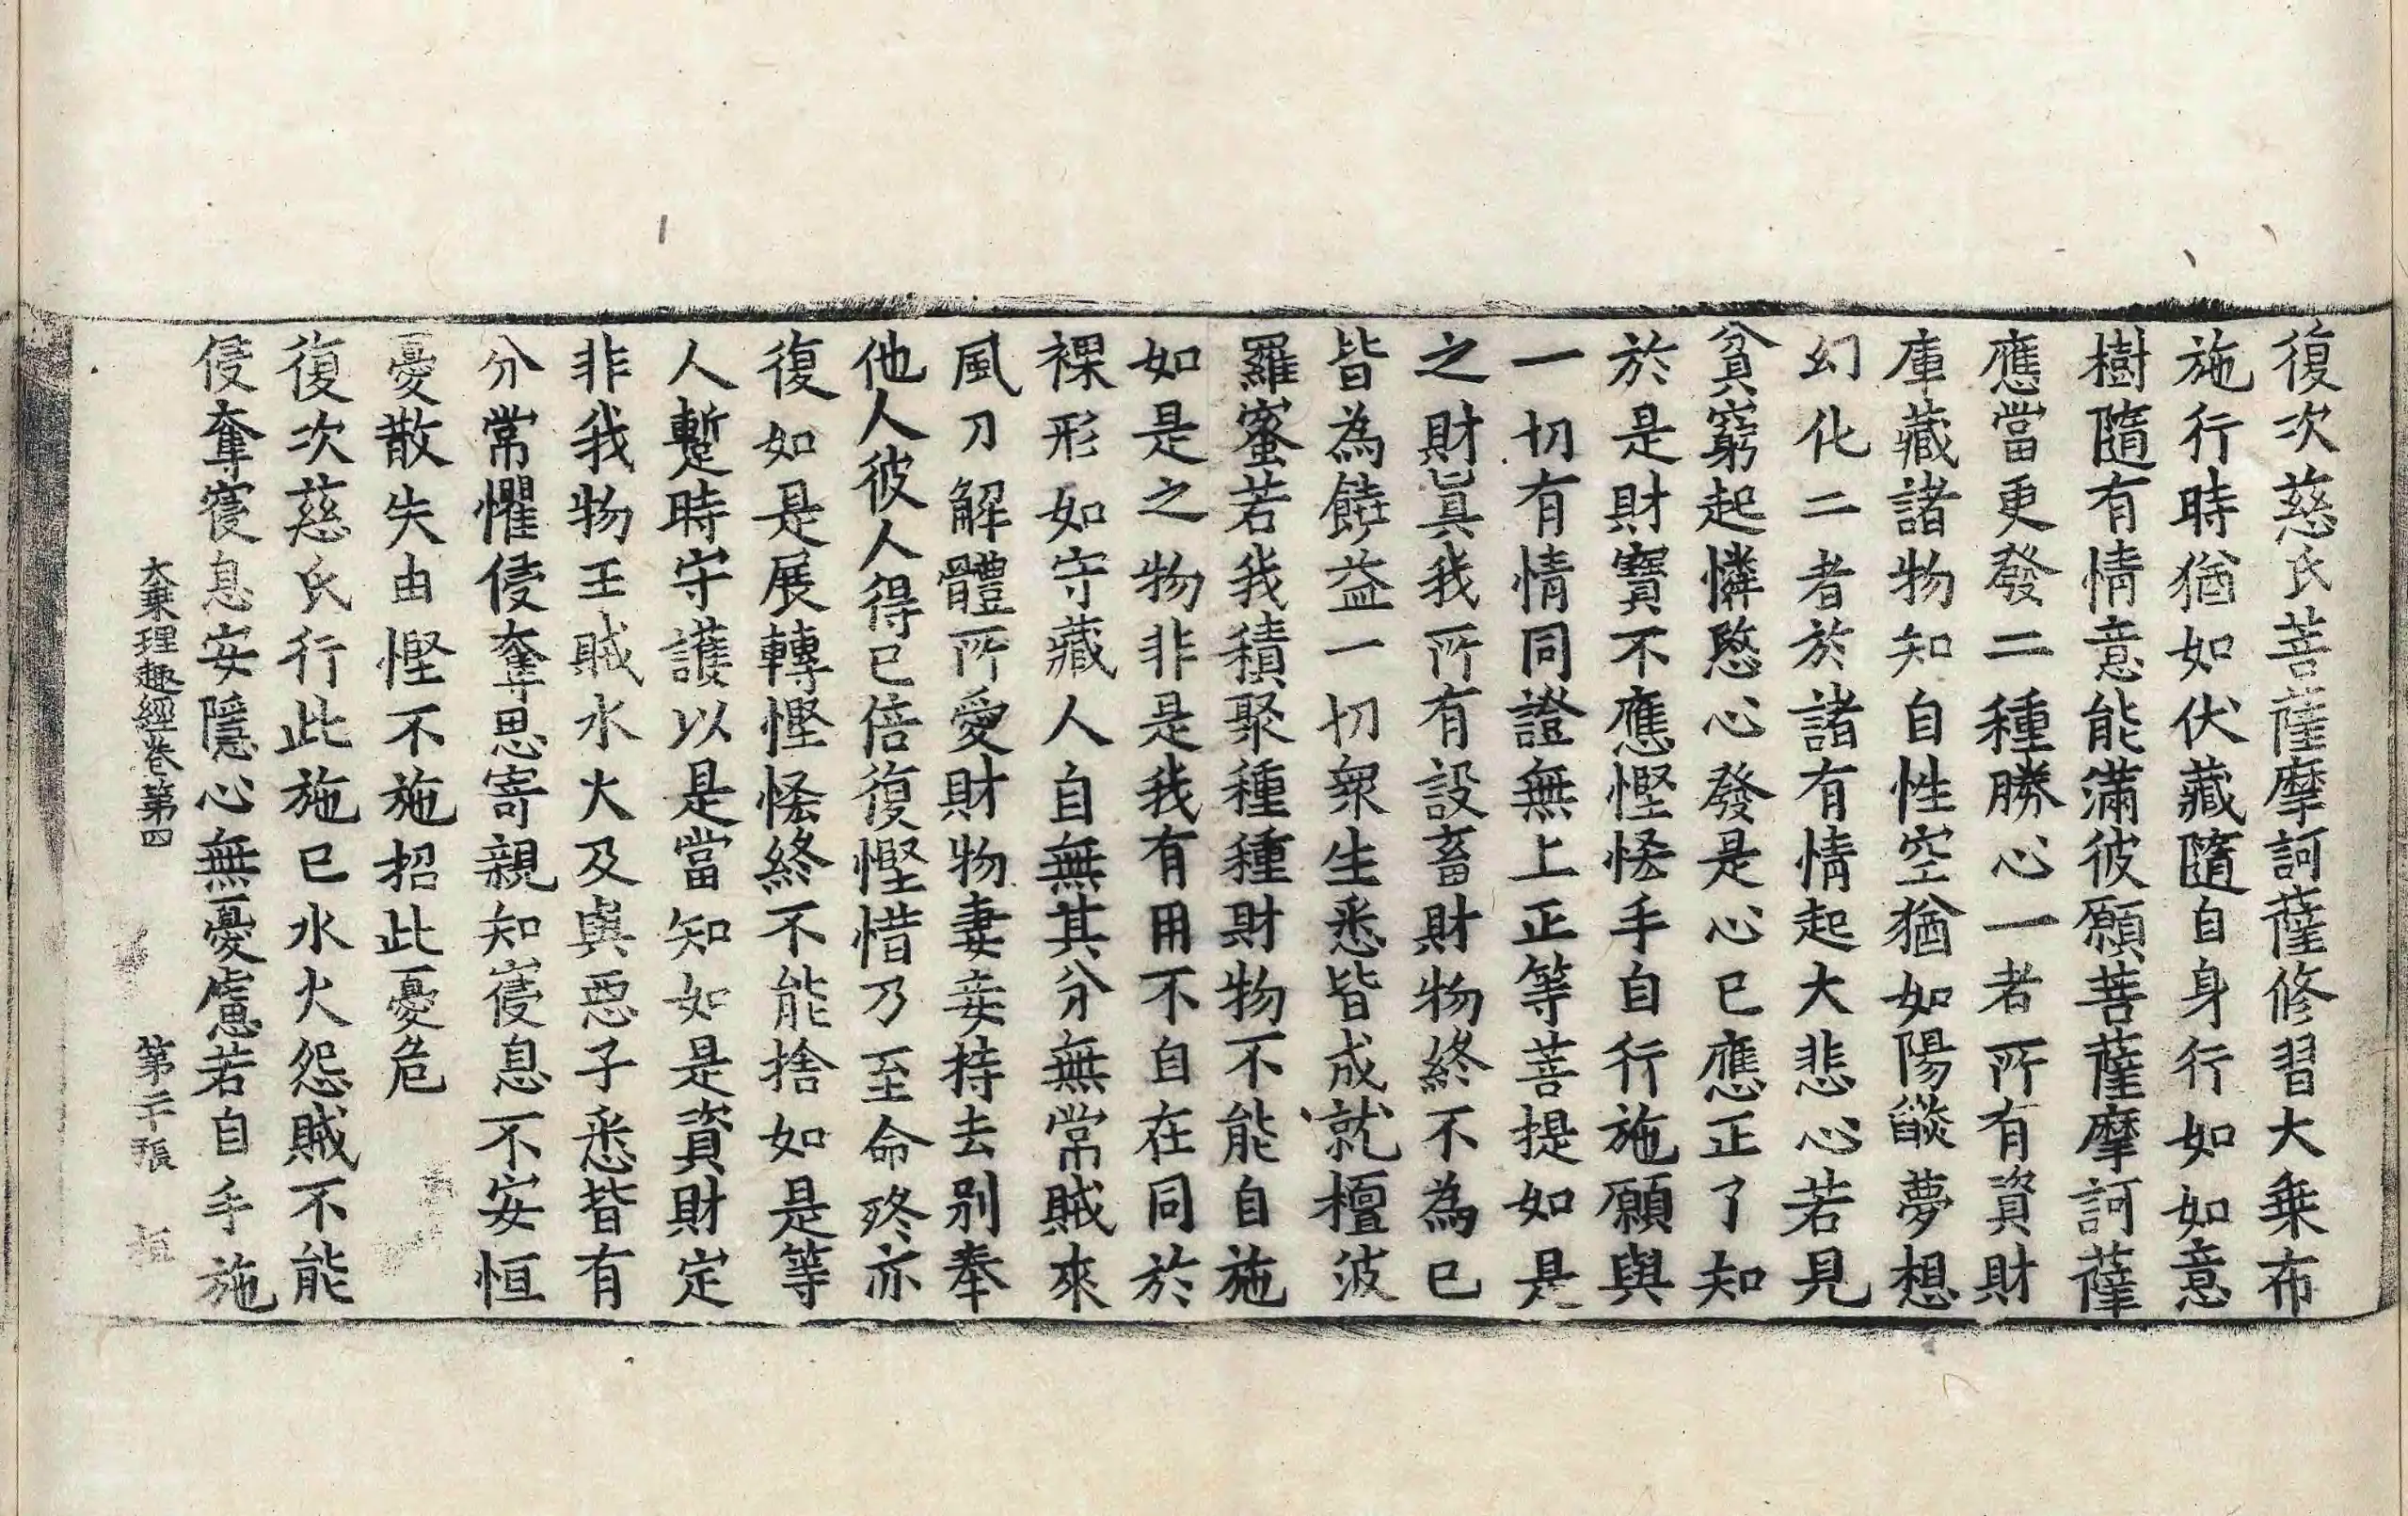 復次慈氏菩薩摩訶薩修習大乗布
施行時猶如伏藏隨自身行如如意
樹隨有情意能滿彼願菩薩摩訶薩
應當更發二種勝心一者所有資財
庫藏諸物知自性空猶如陽燄夢想
幻化二者於諸有情起大悲心若見
貧窮起憐愍心發是心已應正了知
於是財寶不應慳悋手自行施願與
一切有情同證無上正等菩提如是
之財眞我所有設畜財物終不為已
皆為饒益一切衆生悉皆成就檀波
羅蜜若我積聚種種財物不能自施
如是之物非是我有用不自在同於
裸形如守藏人自無其分無常賊來
風刀解體所愛財物妻妾持去別奉
他人彼人得已倍復慳惜乃至命終亦
復如是展轉慳悋終不能捨如是等
人蹔時守護以是當知如是資財定
非我物王賊水火及與惡子悉皆有
分常懼侵奪思寄親知寑息不安恒
憂散失由慳不施招此憂危
復次慈氏行此施已水火怨賊不能
侵奪寑息安隱心無憂慮若自手施
大乗理趣經卷第四 第二十張